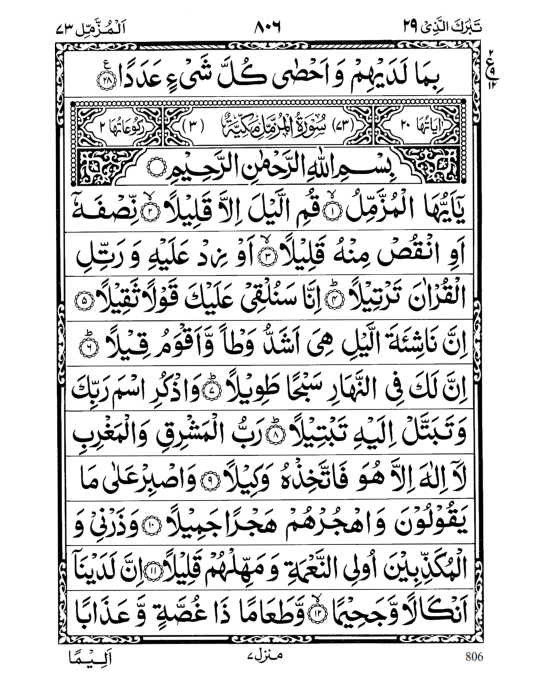 تَبٰرَكَ الَّذِیْ ۲۹ ۸۰۶ اَلْمُزَّمِّل ۷۳
۲
ع
۹
۱۲
بِمَا لَدَيْهِمْ وَاَحْصٰى كُلَّ شَيْءٍ عَدَدًا ﴿۲۸﴾ ع
اٰيَاتُهَا ۲۰ (۷۳) سُوْرَةُ الْمُزَّمِّلِ مَكِّيَّةٌ (۳) رُكُوْعَاتُهَا ۲
بِسْمِ اللّٰهِ الرَّحْمٰنِ الرَّحِيْمِ
يٰۤاَيُّهَا الْمُزَّمِّلُ ﴿۱﴾ قُمِ الَّيْلَ اِلَّا قَلِيْلًا ﴿۲﴾ نِّصْفَهٗۤ
اَوِ انْقُصْ مِنْهُ قَلِيْلًا ﴿۳﴾ اَوْ زِدْ عَلَيْهِ وَرَتِّلِ
الْقُرْاٰنَ تَرْتِيْلًا ﴿۴﴾ اِنَّا سَنُلْقِيْ عَلَيْكَ قَوْلًا ثَقِيْلًا ﴿۵﴾
اِنَّ نَاشِئَةَ الَّيْلِ هِيَ اَشَدُّ وَطْاً وَّاَقْوَمُ قِيْلًا ﴿۶﴾
اِنَّ لَكَ فِى النَّهَارِ سَبْحًا طَوِيْلًا ﴿۷﴾ وَاذْكُرِ اسْمَ رَبِّكَ
وَتَبَتَّلْ اِلَيْهِ تَبْتِيْلًا ﴿۸﴾ رَبُّ الْمَشْرِقِ وَالْمَغْرِبِ
لَاۤ اِلٰهَ اِلَّا هُوَ فَاتَّخِذْهُ وَكِيْلًا ﴿۹﴾ وَاصْبِرْ عَلٰى مَا
يَقُوْلُوْنَ وَاهْجُرْهُمْ هَجْرًا جَمِيْلًا ﴿۱۰﴾ وَذَرْنِيْ وَ
الْمُكَذِّبِيْنَ اُولِى النَّعْمَةِ وَمَهِّلْهُمْ قَلِيْلًا ﴿۱۱﴾ اِنَّ لَدَيْنَاۤ
اَنْكَالًا وَّجَحِيْمًا ﴿۱۲﴾ وَّطَعَامًا ذَا غُصَّةٍ وَّعَذَابًا
806 منزل ۷ اَلِيْمًا